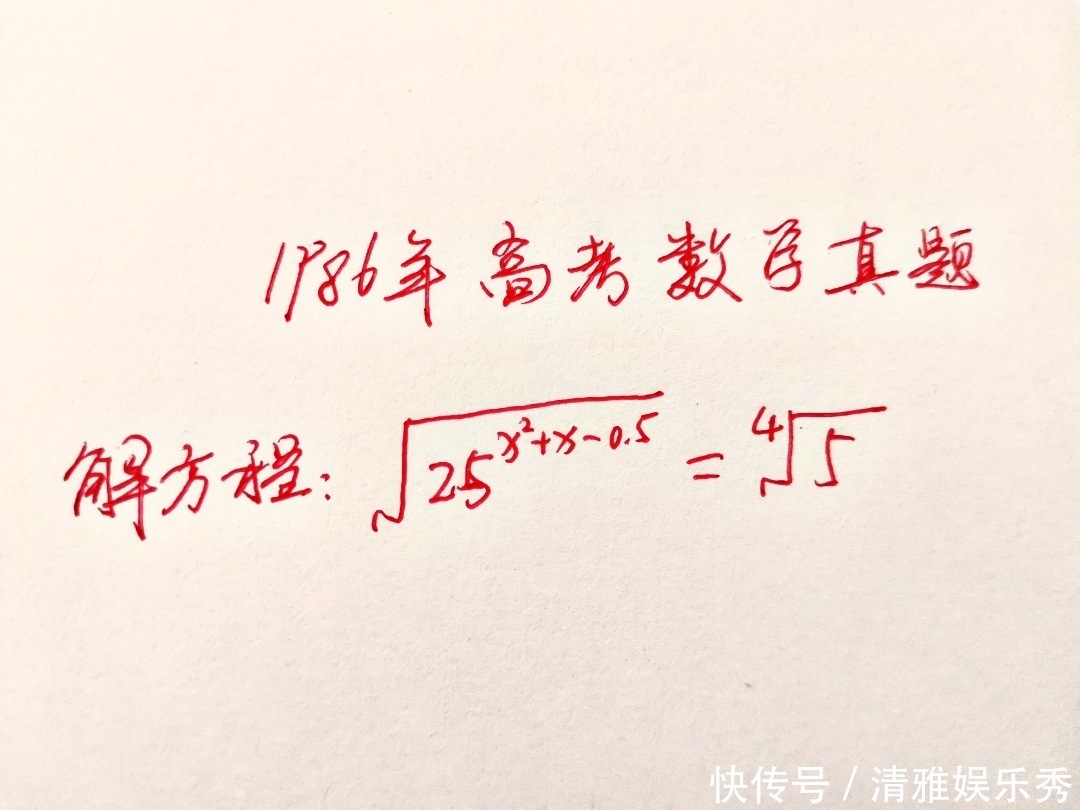 1986年高考数学真题
解方程: √25^(x²+x-0.5) = ⁴√5
快传号 / 清雅娱乐秀